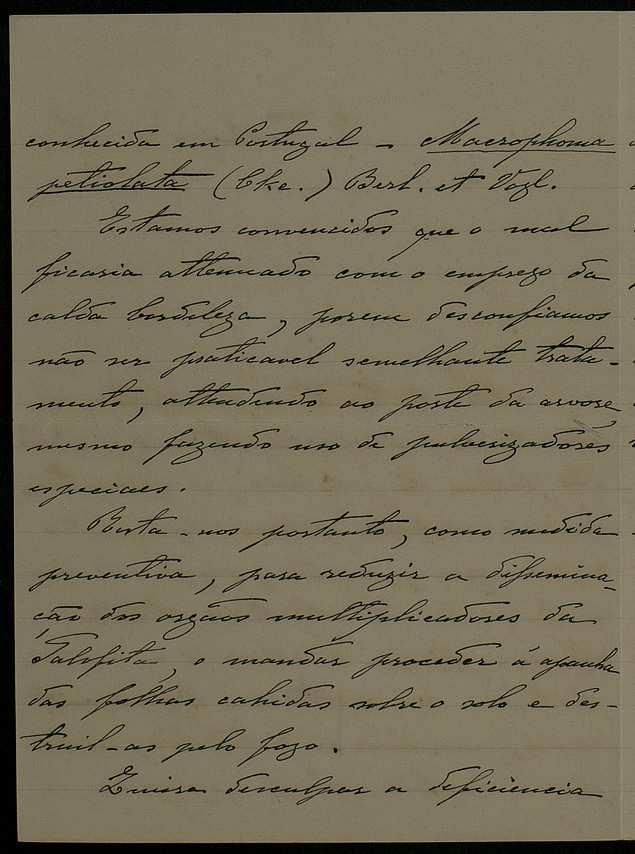 conhecida em Portugal - Macrophoma
petiolata (Cke.) Berl. et Vogl.
Estamos convencidos que o mal
ficaria attenuado com o emprego da
calda bordeleza, porem desconfiamos
não ser praticavel semelhante trata-
mento, attendendo ao porte da arvore,
mesmo fazendo uso de pulverizadores
especiaes.
Resta-nos portanto, como medida
preventiva, para reduzir a dissemina-
ção dos orgãos multiplicadores da
Talofita, o mandar proceder á apanha
das folhas cahidas sobre o solo e des-
truil-as pelo fogo.
Queira desculpar a deficiencia